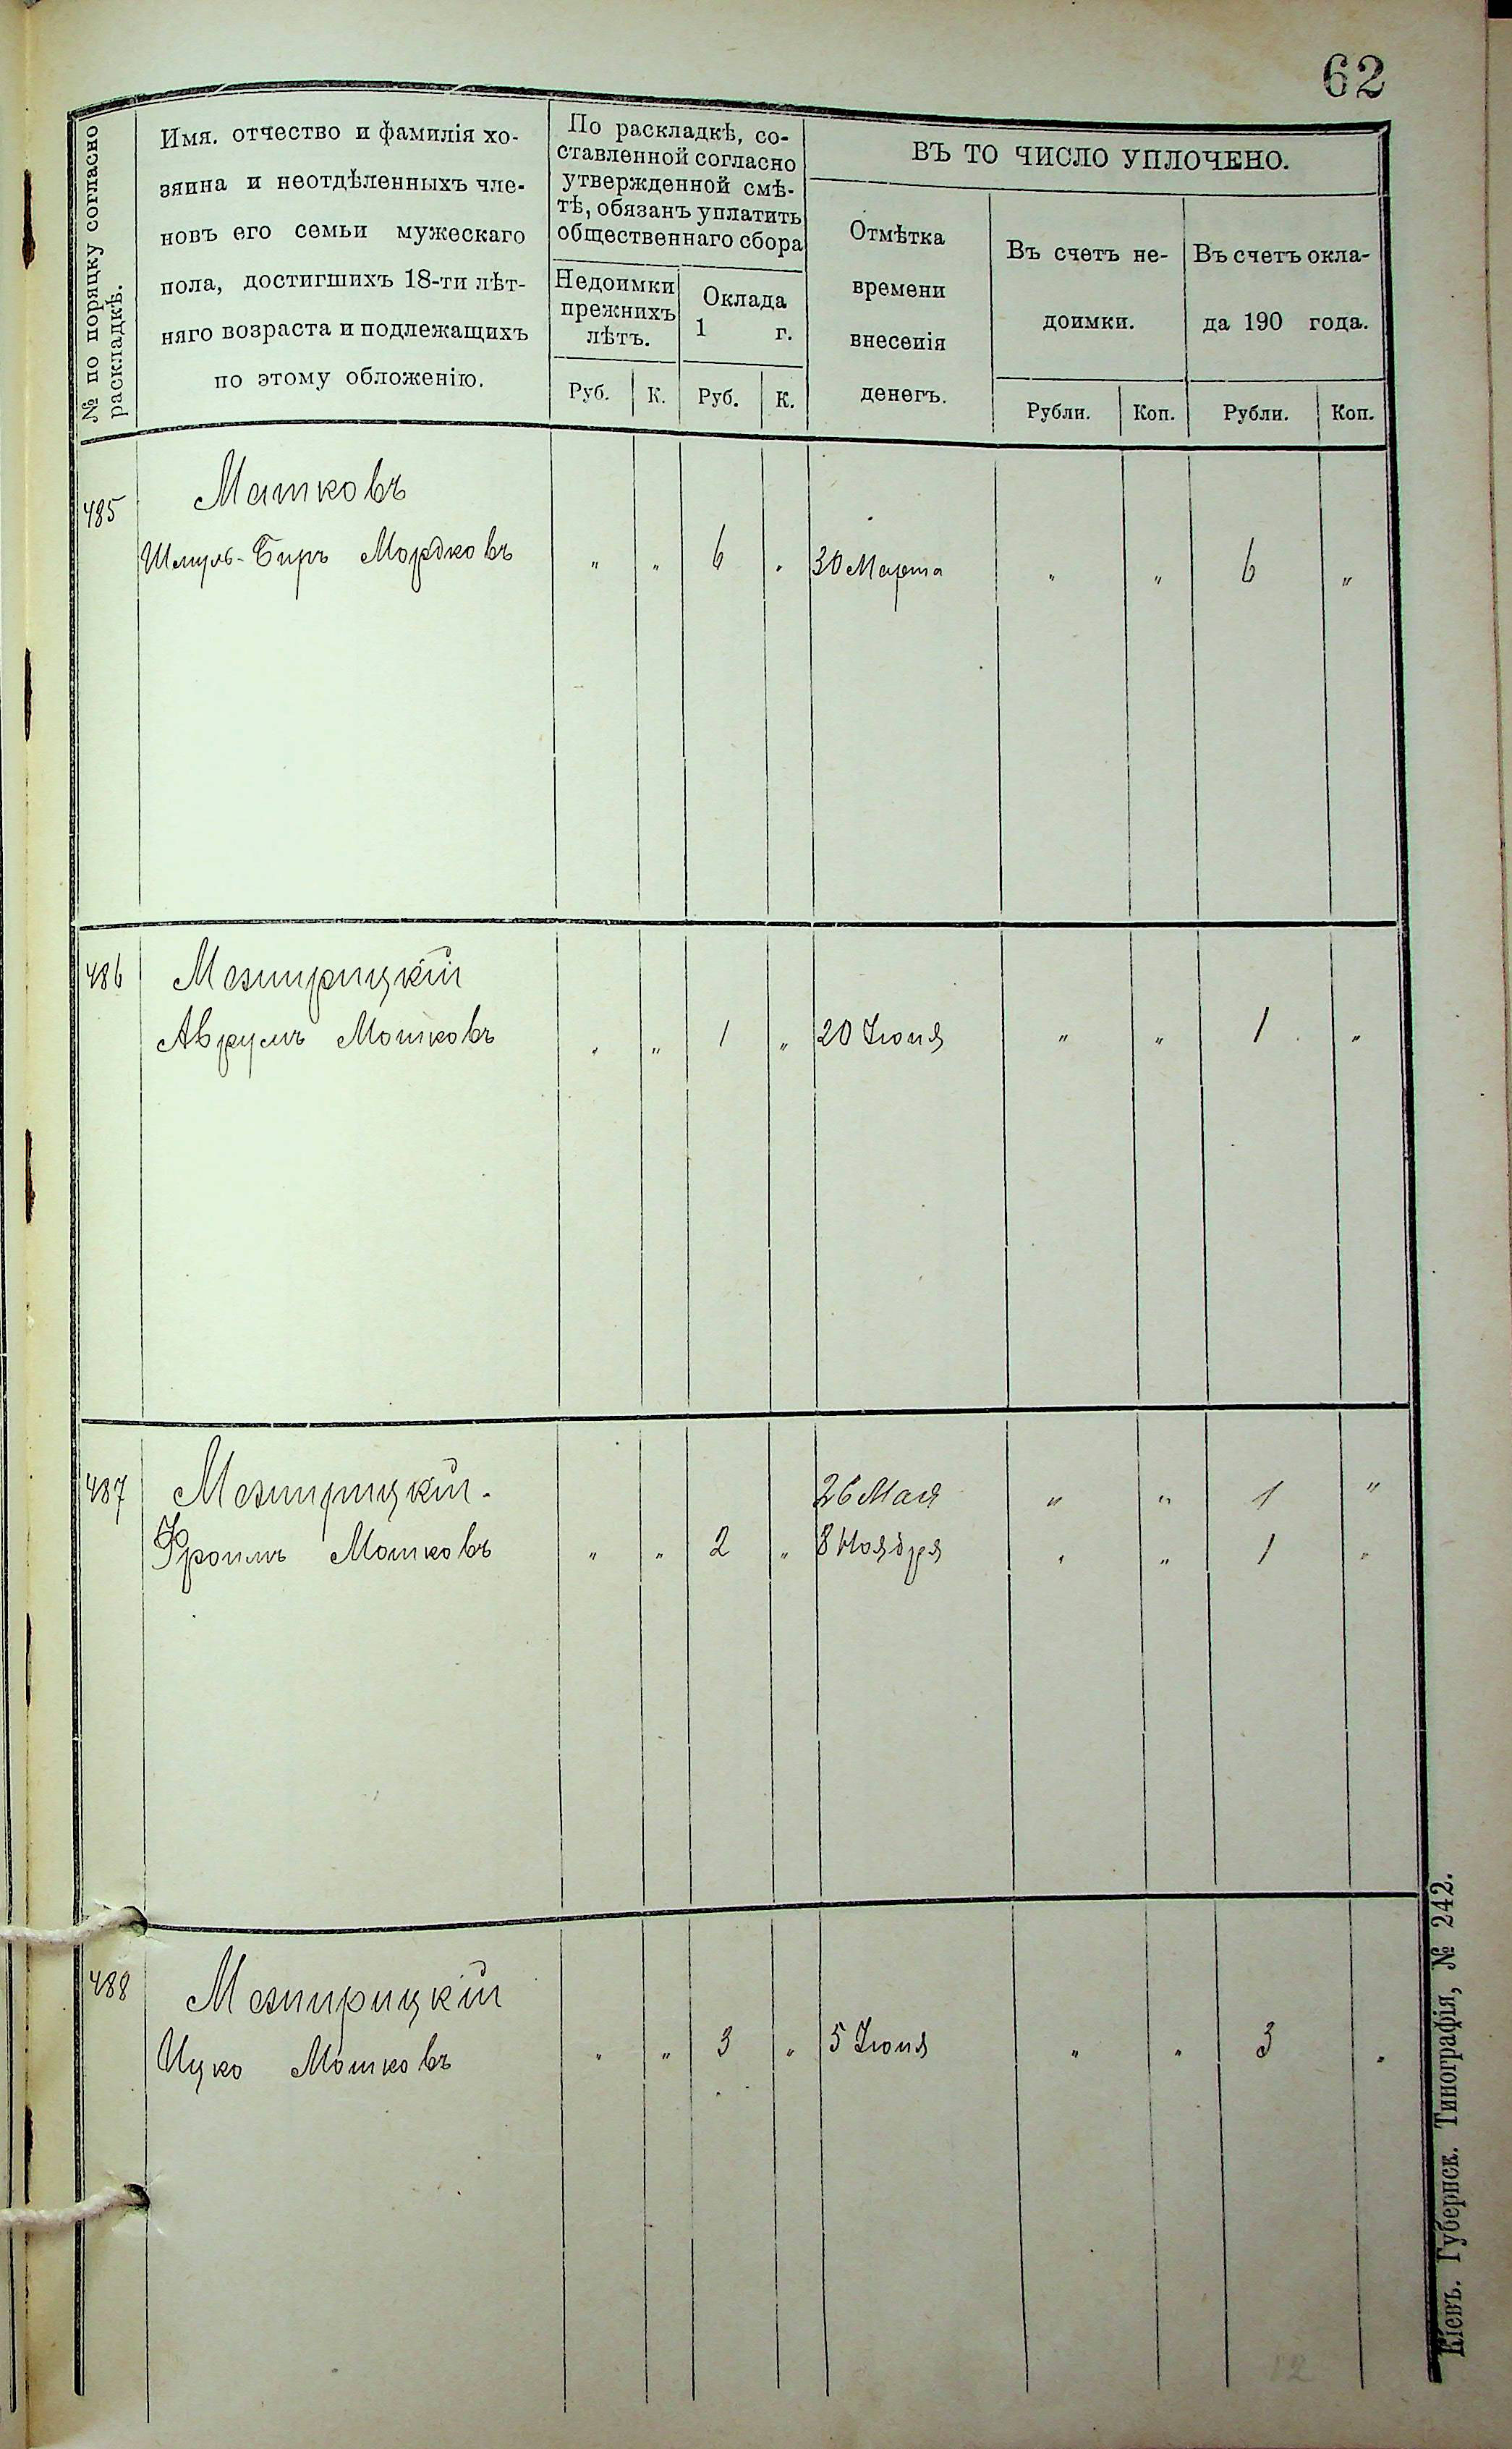 62
№ по порядку согласно
раскладкѣ.
Имя. отчество и фамилія хо-
зяина и неотдѣленныхъ чле-
новъ его семьи мужескаго
пола, достигшихъ 18-ти лѣт-
няго возраста и подлежащихъ
по этому обложенію.
По раскладкѣ, со-
ставленной согласно
утвержденной смѣ-
тѣ, обязанъ уплатить
общественнаго сбора
Недоимки
прежнихъ
лѣтъ.
Оклада
1 г.
Руб. К. Руб. К.
ВЪ ТО ЧИСЛО УПЛОЧЕНО.
Отмѣтка
времени
внесенія
денегъ.
Въ счетъ не-
доимки.
Въ счетъ окла-
да 190 года.
Рубли. Коп. Рубли. Коп.
485 Матковъ
Шмуль-Биръ Мордковъ " " 6 " 30 Марта " " 6 "
486 Мезирицкій
Аврумъ Мошковъ " " 1 " 20 Іюня " " 1 "
487 Мезирицкій. 26 Мая " " 1 "
Фроимъ Мошковъ " " 2 " 8 Ноября " " 1 "
488 Мезирицкій
Ицко Мошковъ " " 3 " 5 Іюня " " 3 "
12
Кіевъ. Губернск. Типографія, № 242.